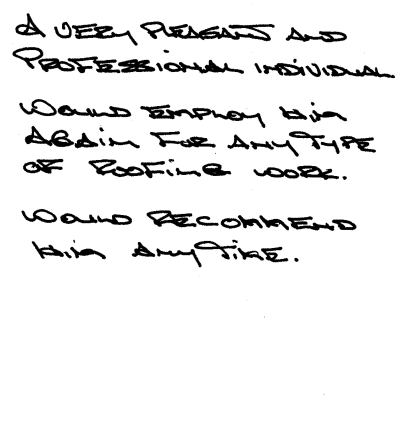 A VERY PLEASANT AND
PROFESSIONAL INDIVIDUAL
WOULD EMPLOY HIM
AGAIN FOR ANY TYPE
OF ROOFING WORK.
WOULD RECOMMEND
HIM ANYTIME.